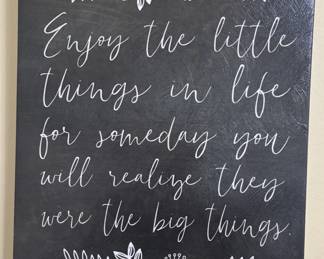 Enjoy the little
things in life
for someday you
will realize they
were the big things.